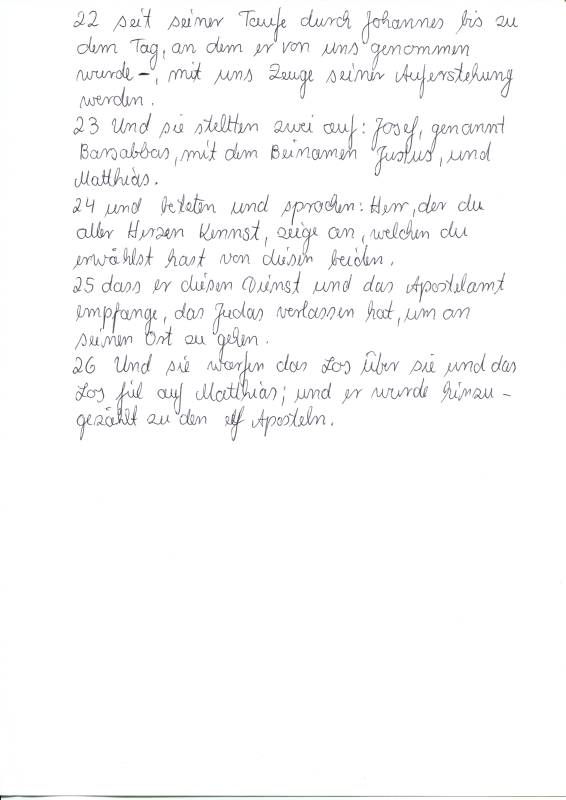 22 seit seiner Taufe durch Johannes bis zu
dem Tag, an dem er von uns genommen
wurde –, mit uns Zeuge seiner Auferstehung
werden.
23 Und sie stellten zwei auf: Josef, genannt
Barsabbas, mit dem Beinamen Justus, und
Matthias.
24 und beteten und sprachen: Herr, der du
aller Herzen kennst, zeige an, welchen du
erwählst hast von diesen beiden.
25 dass er diesen Dienst und das Apostelamt
empfange, das Judas verlassen hat, um an
seinen Ort zu gehen.
26 Und sie warfen das Los über sie und das
Los fiel auf Matthias; und er wurde hinzu-
gezählt zu den elf Aposteln.